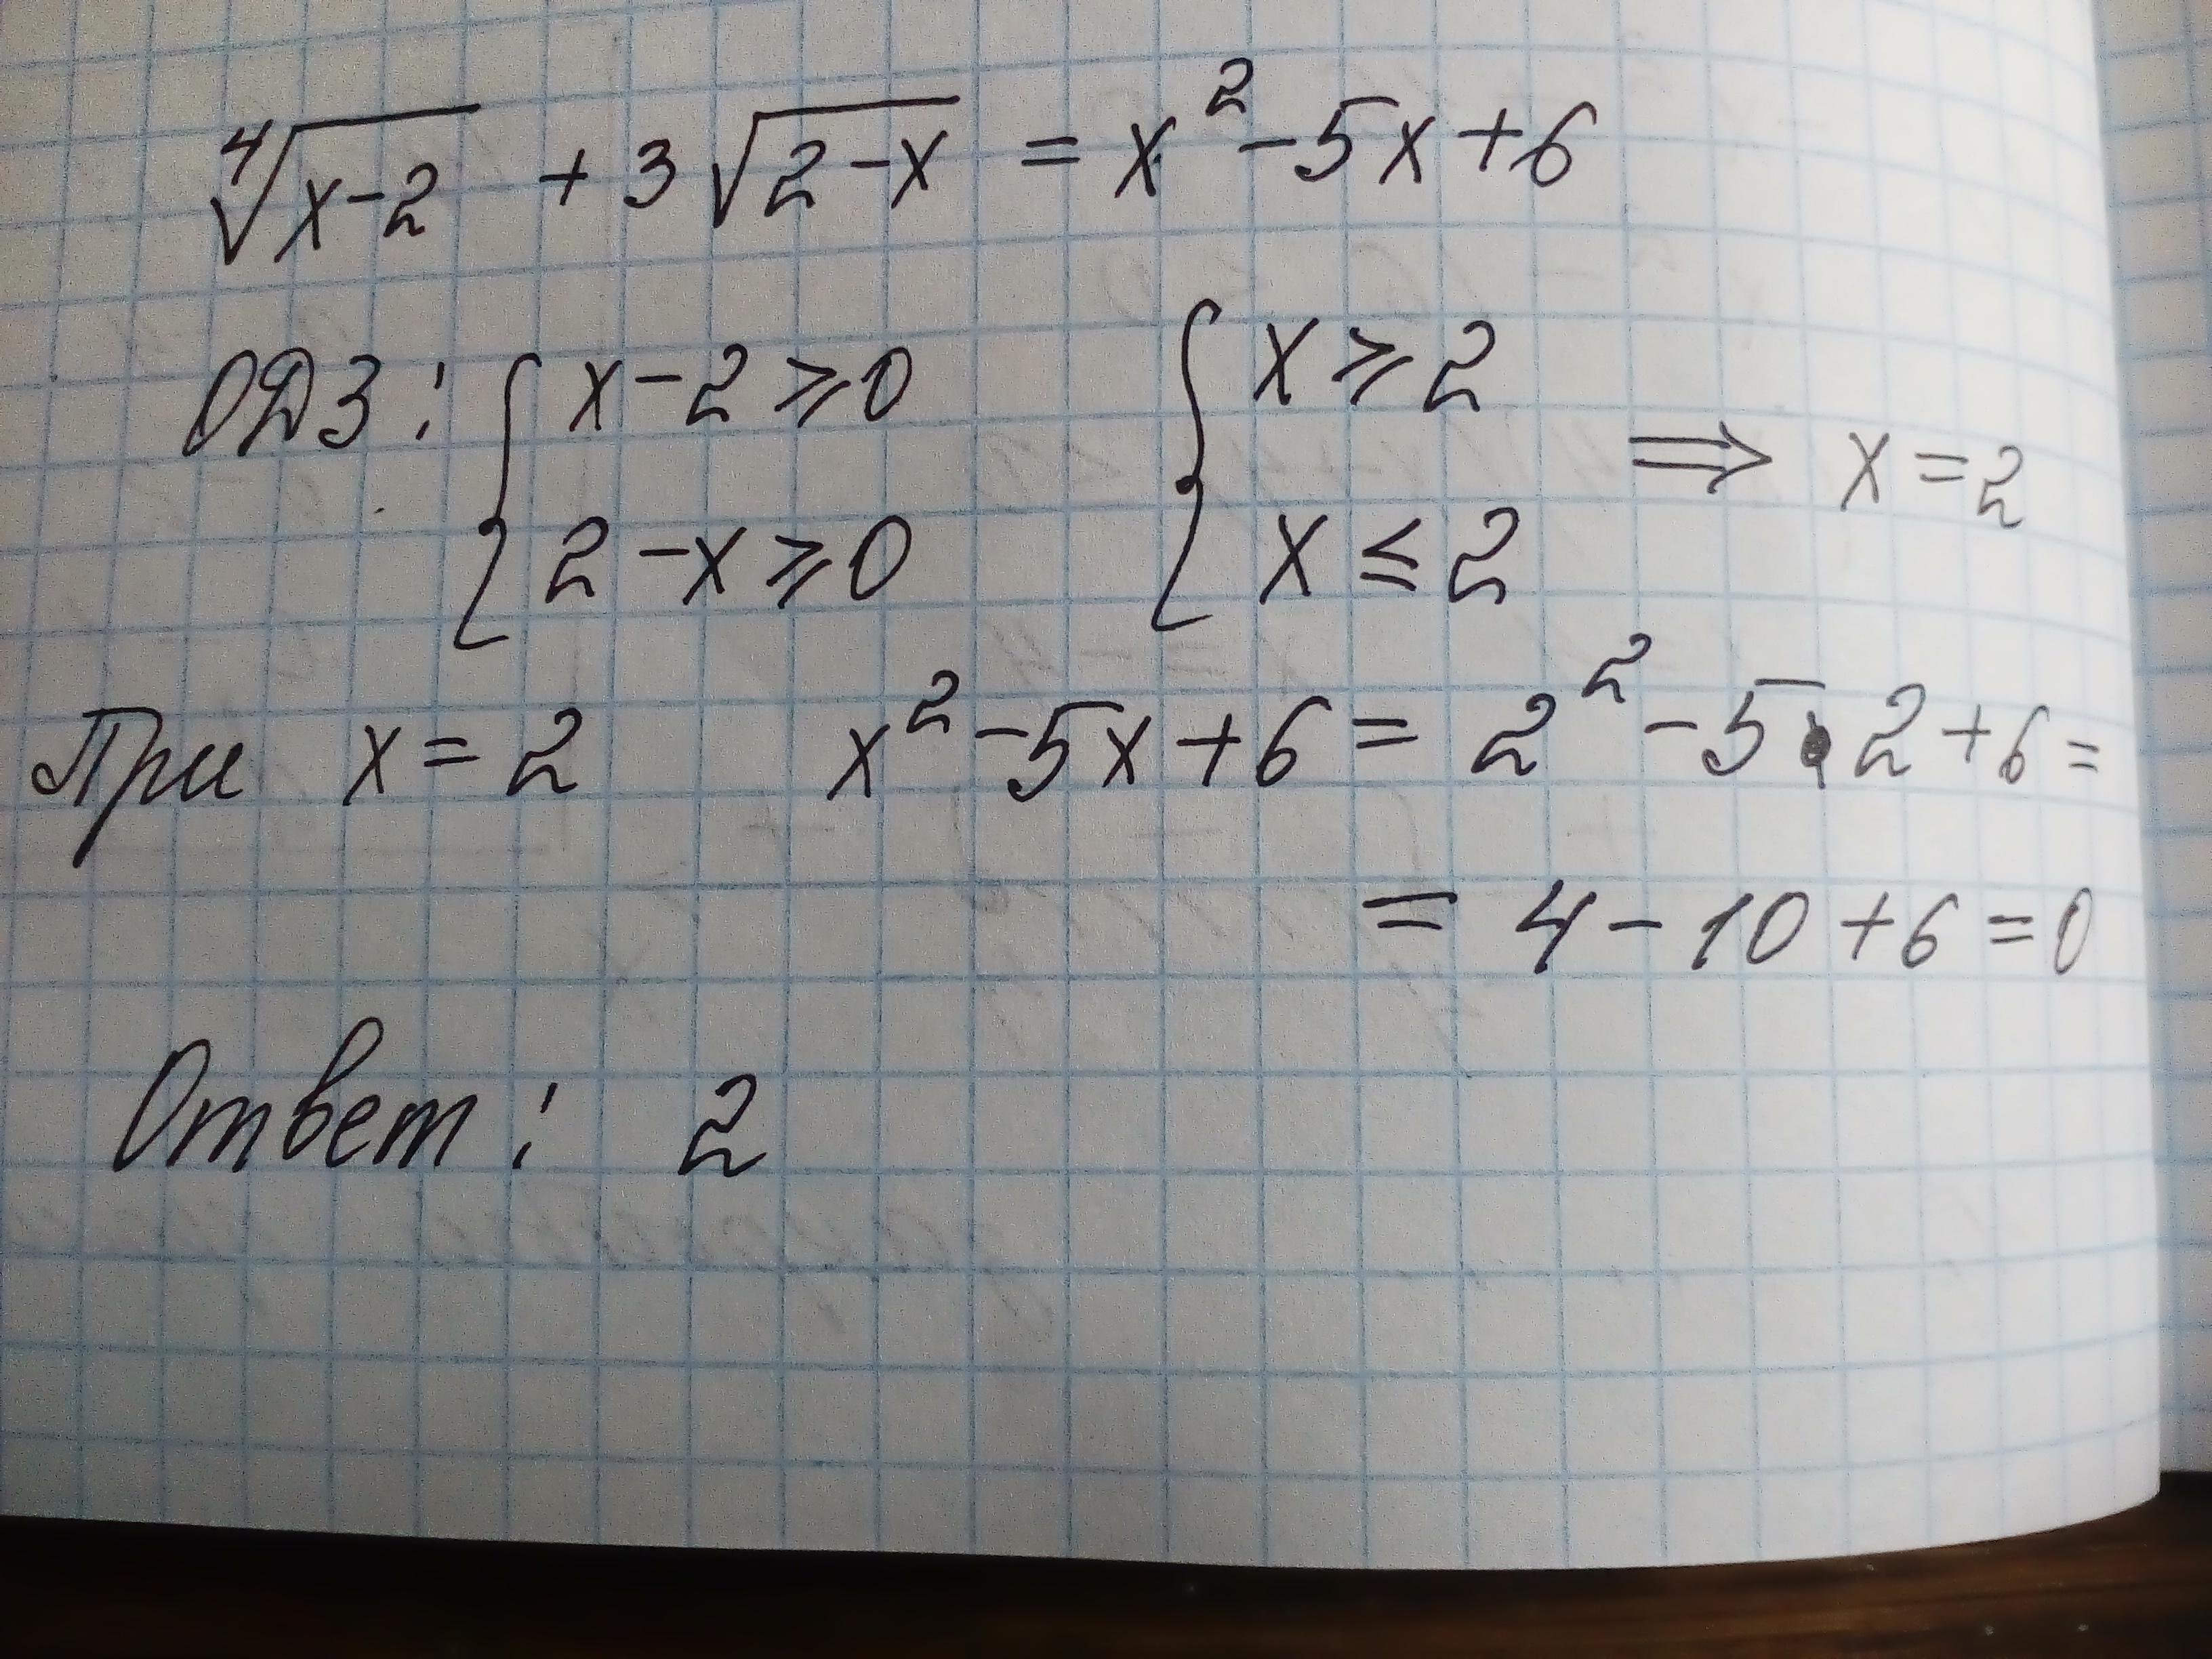 ∜(x-2) + 3√(2-x) = x² - 5x + 6
ОДЗ: { x-2 ⩾ 0 { x ⩾ 2
⇒ x = 2
2-x ⩾ 0 x ≤ 2
При x = 2 x² - 5x + 6 = 2² - 5·2 + 6 =
= 4 - 10 + 6 = 0
Ответ: 2